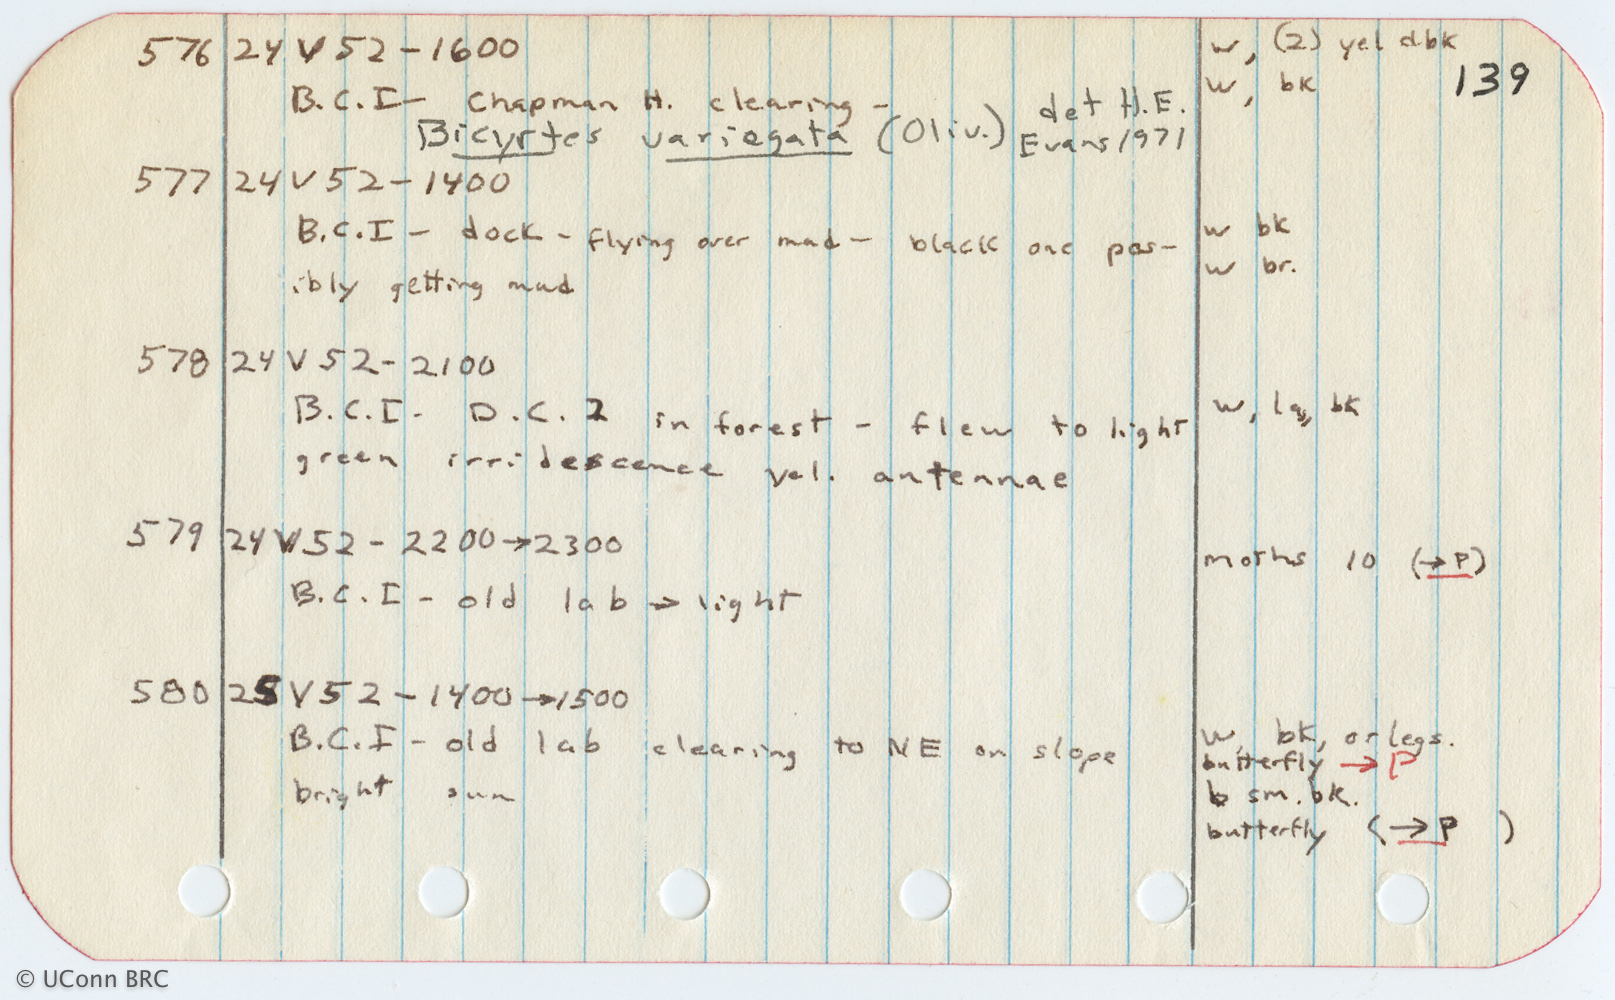 576 24 V 52 - 1600 w, (2) yel dbk
139
B.C.I - Chapman H. clearing - w, bk
Bicyrtes variegata (Oliv.) det H.E. Evans 1971
577 24 V 52 - 1400
B.C.I - dock - flying over mud - black one pos- w bk
ibly getting mud w br.
578 24 V 52 - 2100
B.C.I - D.C. 2 in forest - flew to light w, lg, bk
green irridescence yel. antennae
579 24 V 52 - 2200 → 2300
moths 10 (→ P)
B.C.I - old lab → light
580 25 V 52 - 1400 → 1500
B.C.I - old lab clearing to NE on slope w, bk, or legs.
butterfly → P
bright sun b sm. bk.
butterfly (→ P )
© UConn BRC